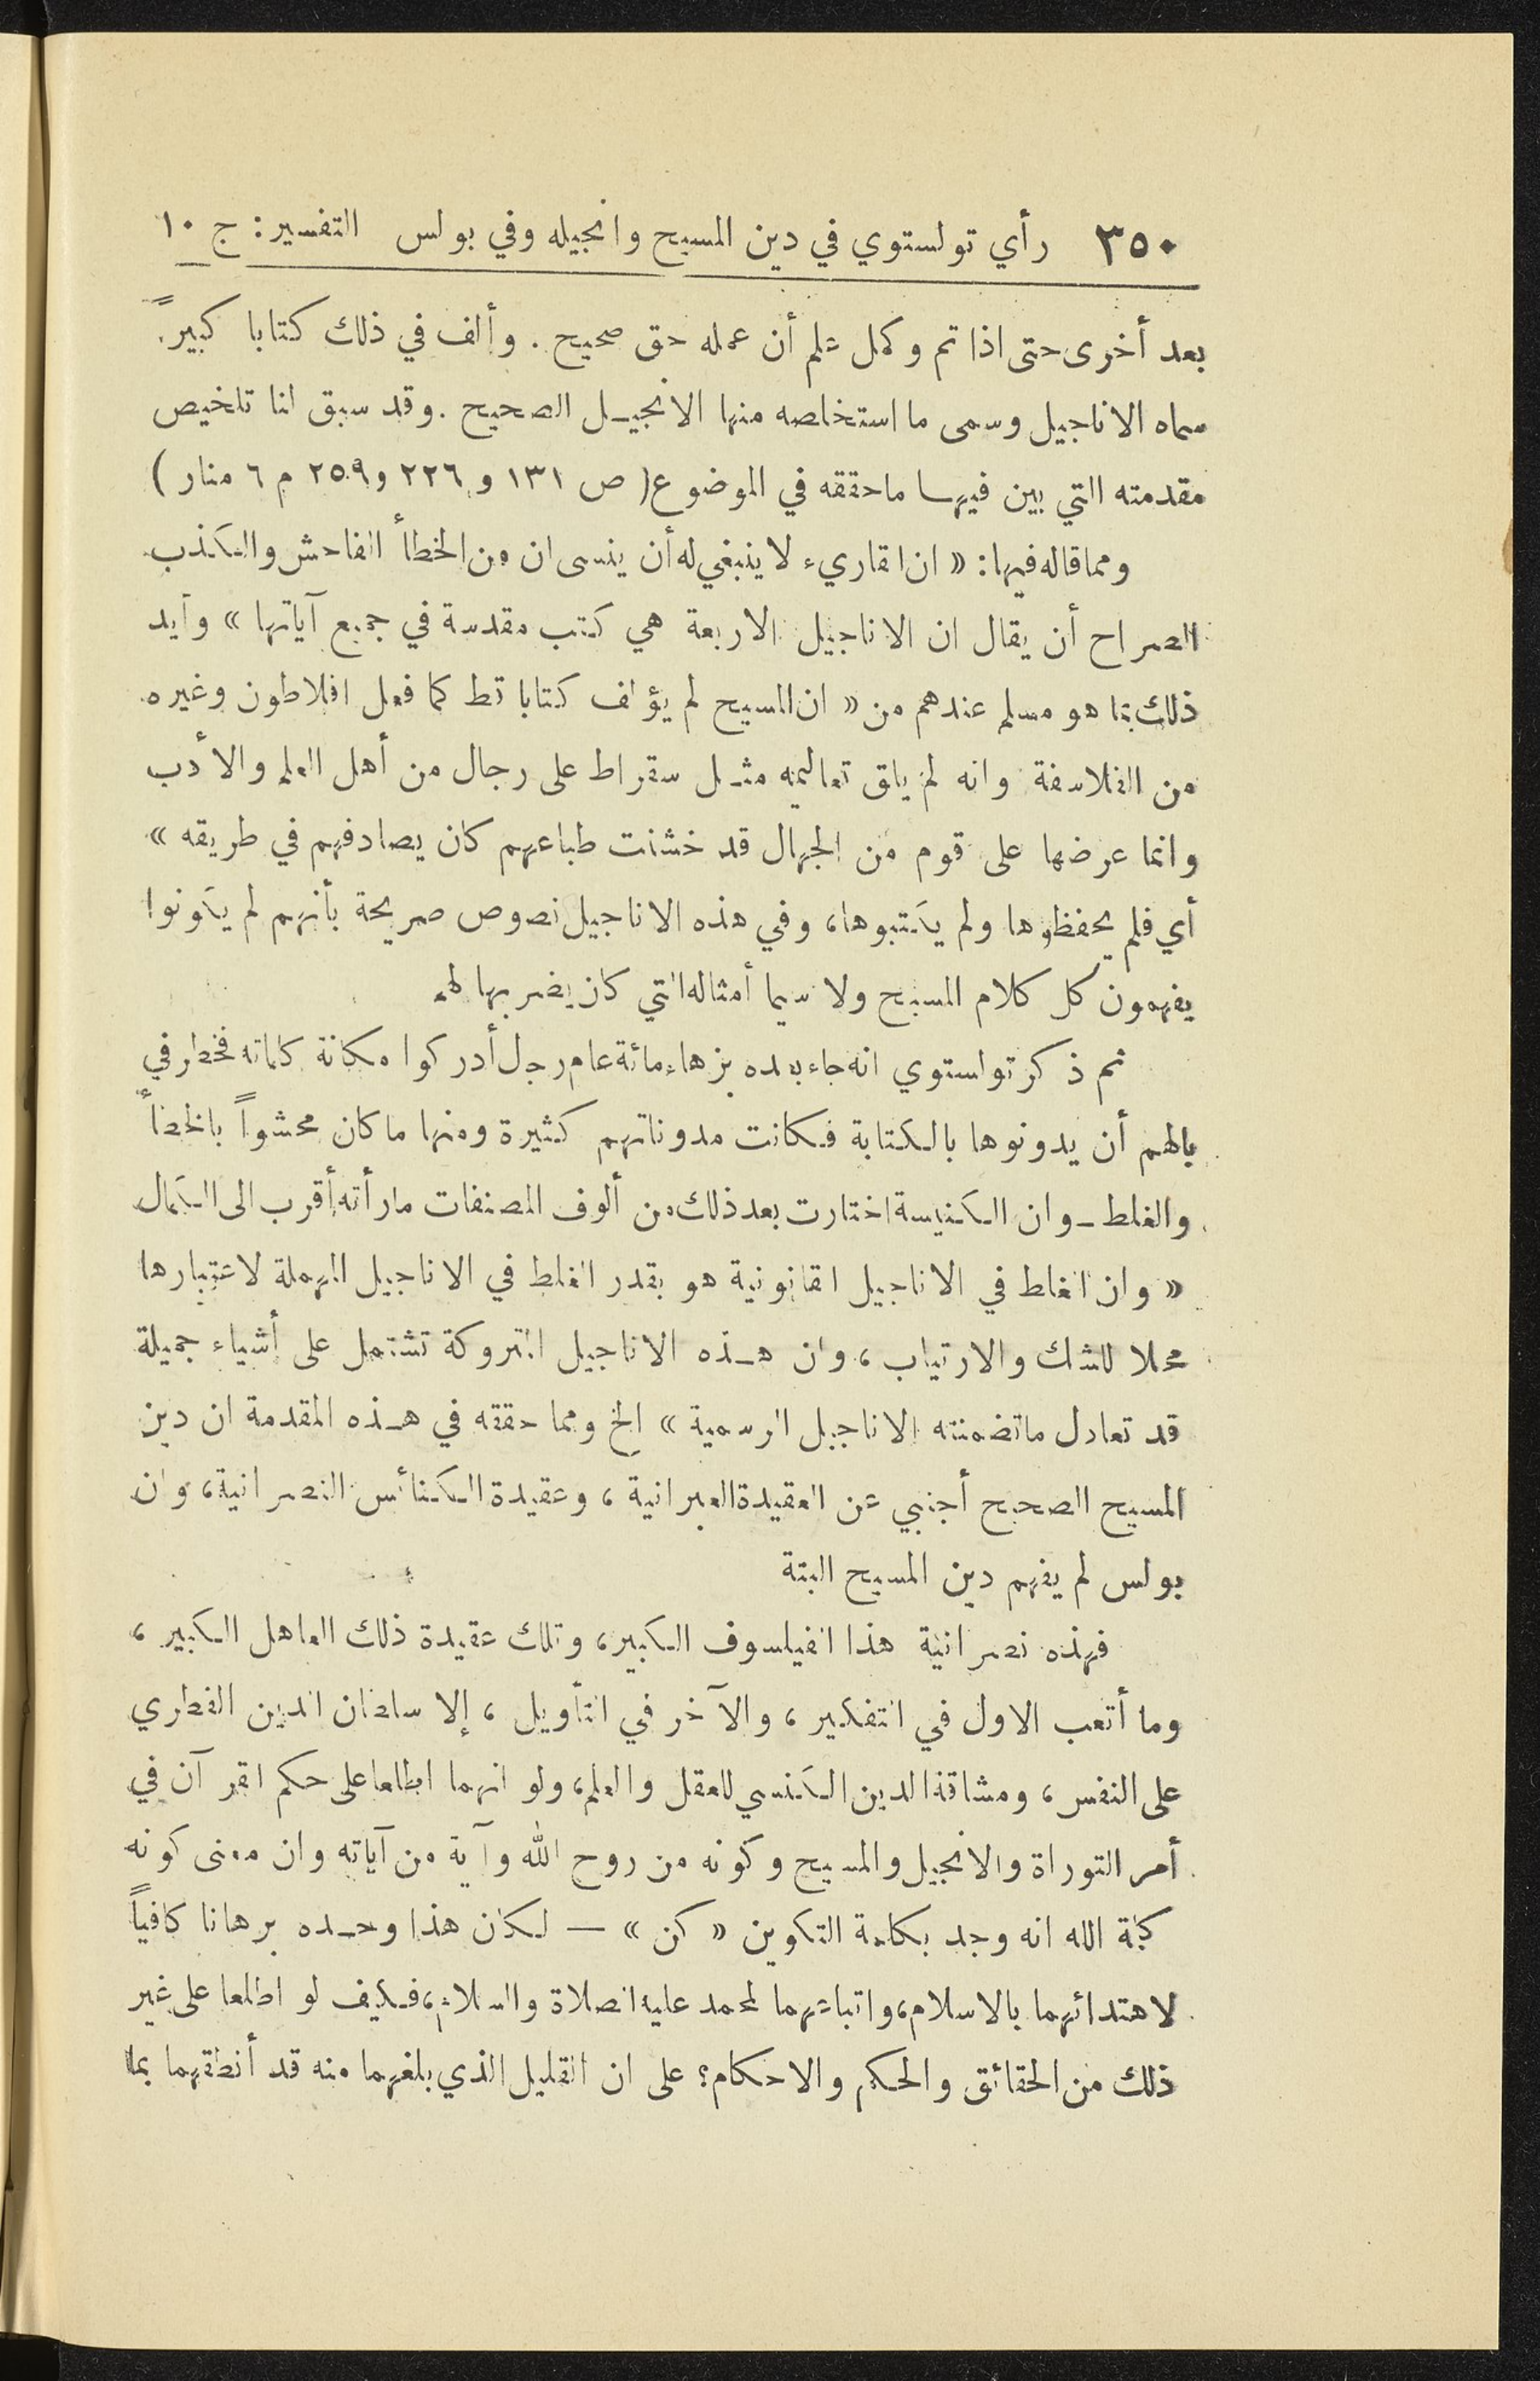 ٣٥٠ رأي تولستوي في دين المسيح وانجيله وفي بولس التفسير: ج ١٠
بعد أخرى حتى اذا تم وكمل علم أن عمله حق صحيح. وألف في ذلك كتابا كبيراً
سماه الاناجيل وسمى ما استخلصه منها الانجيل الصحيح. وقد سبق لنا تلخيص
مقدمته التي بين فيها ما حققه في الموضوع (ص ١٣١ و ٢٢٦ و ٢٥٩ م ٦ منار)
ومما قاله فيها: « ان القاريء لا ينبغي له أن ينسى ان من الخطأ الفاحش والكذب
الصراح أن يقال ان الاناجيل الاربعة هي كتب مقدسة في جميع آياتها » وأيد
ذلك بما هو مسلم عندهم من « ان المسيح لم يؤلف كتابا قط كما فعل افلاطون وغيره
من الفلاسفة وانه لم يلق تعاليمه مثل سقراط على رجال من أهل العلم والأدب
وانما عرضها على قوم من الجهال قد خشنت طباعهم كان يصادفهم في طريقه »
أي فلم يحفظوها ولم يكتبوها، وفي هذه الاناجيل نصوص صريحة بأنهم لم يكونوا
يفهمون كل كلام المسيح ولا سيما أمثاله التي كان يضربها لهم
ثم ذكر تولستوي انه جاء بعده بزهاء مائة عام رجل أدركوا مكانة كلماته فخطر في
بالهم أن يدونوها بالكتابة فكانت مدوناتهم كثيرة ومنها ما كان محشواً بالخطأ
والغلط ـ وان الكنيسة اختارت بعد ذلك من ألوف المصنفات ما رأته أقرب الى الكمال
« وان الغلط في الاناجيل القانونية هو بقدر الغلط في الاناجيل المهملة لاعتبارها
محلا للشك والارتياب، وان هذه الاناجيل المتروكة تشتمل على أشياء جميلة
قد تعادل ما تضمنته الاناجيل الرسمية » الخ ومما حققه في هذه المقدمة ان دين
المسيح الصحيح أجنبي عن العقيدة العبرانية، وعقيدة الكنائس النصرانية، وان
بولس لم يفهم دين المسيح البتة
فهذه نصرانية هذا الفيلسوف الكبير، وتلك عقيدة ذلك العاهل الكبير،
وما أتعب الاول في التفكير، والآخر في التأويل، إلا سلطان الدين الفطري
على النفس، ومشاقة الدين الكنسي للعقل والعلم، ولو انهما اطلعا على حكم القرآن في
أمر التوراة والانجيل والمسيح وكونه من روح الله وآية من آياته وان معنى كونه
كلمة الله انه وجد بكلمة التكوين « كن » — لكان هذا وحده برهانا كافياً
لاهتدائهما بالاسلام، واتباعهما لمحمد عليه الصلاة والسلام، فكيف لو اطلعا على غير
ذلك من الحقائق والحكم والاحكام؟ على ان القليل الذي بلغهما منه قد أنطقهما بما